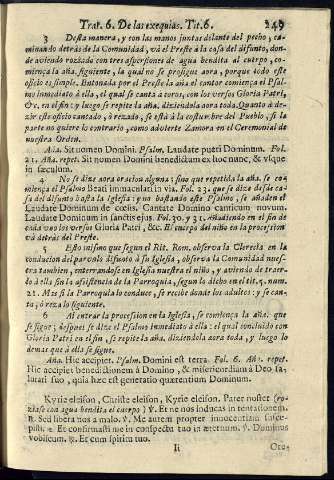 Trat. 6. De las exequias. Tit. 6. 249
3 Desta manera, y con las manos juntas delante del pecho, ca-
minando detrás de la Comunidad, và el Preste à la casa del difunto, don-
de aviendo rozado con tres aspersiones de agua bendita al cuerpo, co-
miença la aña. siguiente, la qual no se prosigue aora, porque todo este
oficio es simple. Entonada por el Preste la aña el cantor comiença el Psal-
mo inmediato à ella, el qual se canta à coros, con los versos Gloria Patri,
&c. en el fin: y luego se repite la aña. diziendola aora toda. Quanto à de-
zir este oficio cantado, ò rezado, se està à la costumbre del Pueblo, si la
parte no quiere lo contrario, como advierte Zamora en el Ceremonial de
nuestra Orden.
Aña. Sit nomen Domini. Psalm. Laudate pueri Dominum. Fol.
21. Aña. repet. Sit nomen Domini benedictum ex hoc nunc, & vsque
in sæculum.
4 No se dize aora oracion alguna; sino que repetida la aña. se co-
miença el Psalmo Beati immaculati in via. Fol. 23. que se dize desde ca-
sa del difunto hasta la Iglesia: y no bastando este Psalmo, se añaden el
Laudate Dominum de cœlis. Cantate Domino canticum novum.
Laudate Dominum in sanctis ejus. Fol. 30. y 31. Añadiendo en el fin de
cada vno los versos Gloria Patri, &c. El cuerpo del niño en la procession
và detrás del Preste.
5 Esto mismo que segun el Rit. Rom. observa la Clerecia en la
conducion del parvulo difunto à su Iglesia, observa la Comunidad nues-
tra tambien, enterrandose en Iglesia nuestra el niño, y aviendo de traer-
lo à ella sin la assistencia de la Parroquia, segun lo dicho en el tit. 5. num.
21. Mas si la Parroquia lo conduce, se recibe donde los adultos: y se can-
ta, ò reza lo siguiente.
6 Al entrar la procession en la Iglesia, se comiença la aña. que
se sigue; despues se dize el Psalmo inmediato à ella: el qual concluido con
Gloria Patri en el fin, se repite la aña. diziendola aora toda, y luego lo
demas que à ella se sigue.
Aña. Hic accipiet. Psalm. Domini est terra. Fol. 6. Aña. repet.
Hic accipiet benedictionem à Domino, & misericordiam à Deo sa-
lutari suo, quia hæc est generatio quærentium Dominum.
Kyrie eleison, Christe eleison, Kyrie eleison. Pater noster (ro-
ziase con agua bendita el cuerpo) ℣. Et ne nos inducas in tentationem.
℟. Sed libera nos a malo. ℣. Me autem propter innocentiam susce-
pisti. ℟. Et confirmasti me in conspectu tuo in æternum. ℣. Dominus
vobiscum. ℟. Et cum spiritu tuo.
Ii Ore-